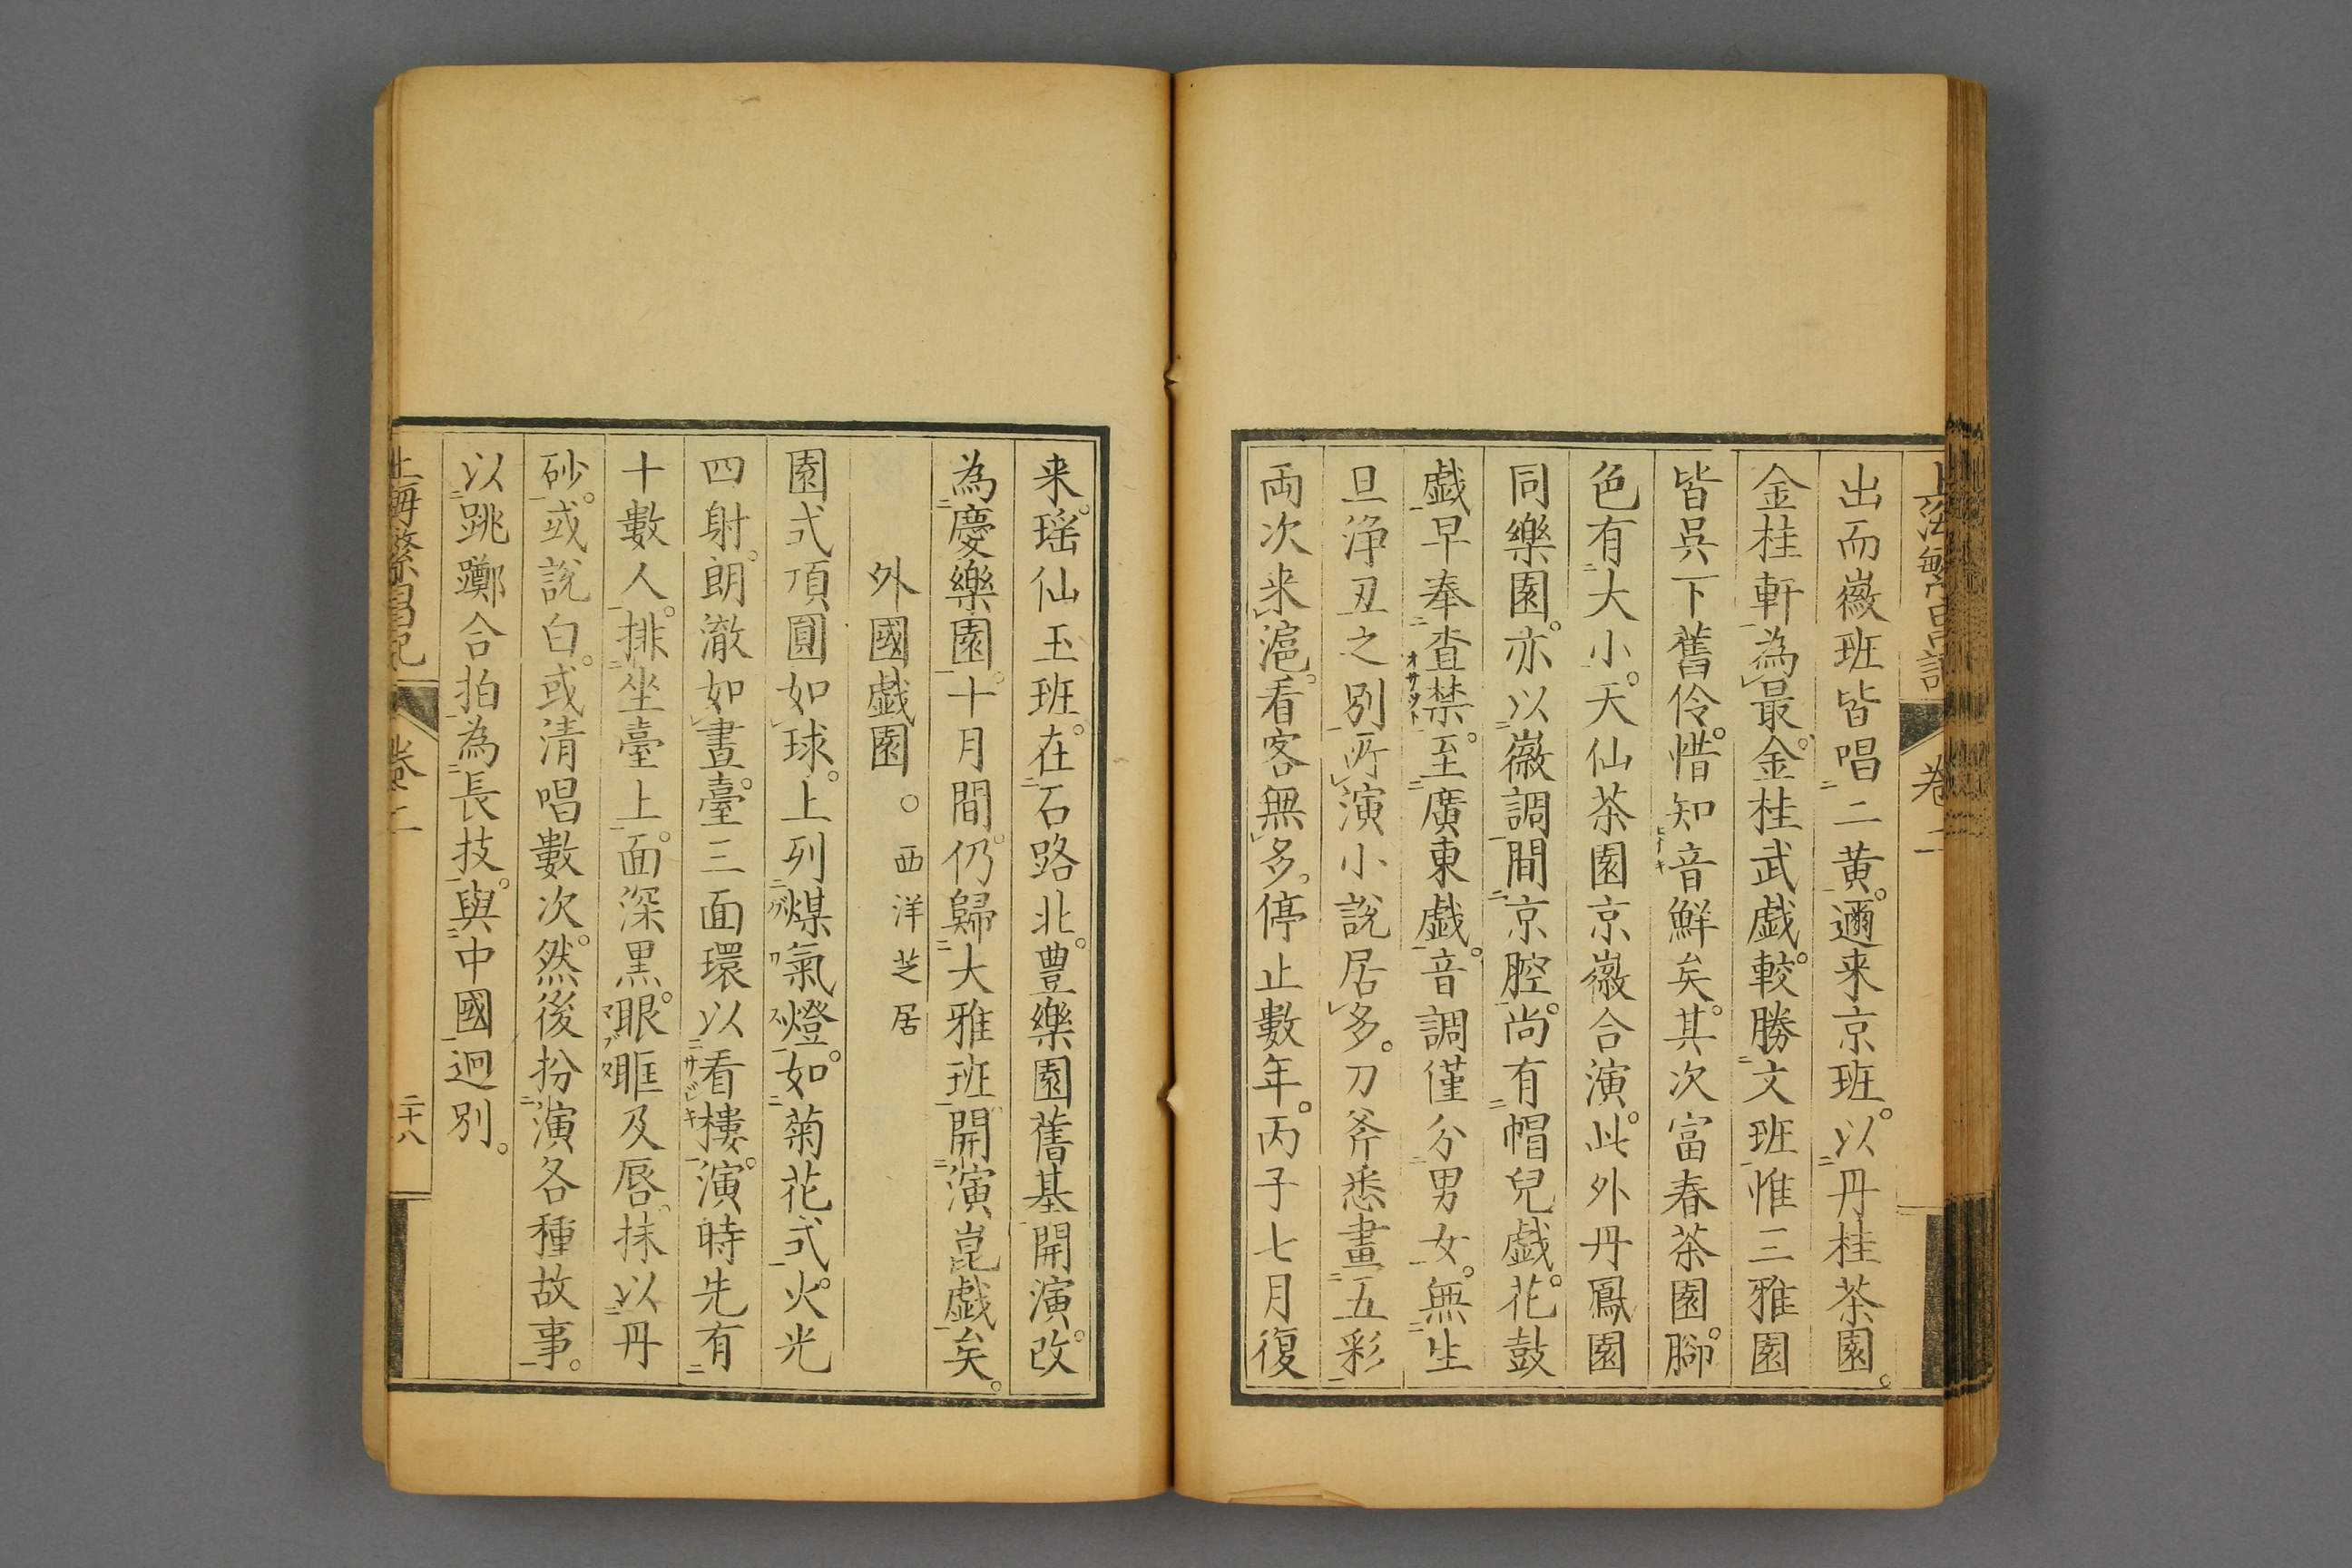 上海繁昌記 卷二
出而徽班皆唱二黄。邇来京班。以丹桂茶園。
金桂軒為最。金桂武戯較勝。文班惟三雅園
皆呉下舊伶。惜知音鮮矣。其次富春茶園。腳
色有大小。天仙茶園京徽合演。此外丹鳳園
同樂園。亦以徽調間京腔。尚有帽兒戯。花鼓
戯早奉查禁。至廣東戯。音調僅分男女。無生
旦浄丑之別。所演小說居多。刀斧悉畫五彩
両次来滬。看客無多。停止數年。丙子七月復
来。瑶仙玉班。在石路北。豊樂園舊基開演。改
為慶樂園。十月間。仍歸大雅班開演崑戯矣。
外國戯園。西洋芝居
園式頂圓如球。上列煤氣燈。如菊花式。火光
四射。朗澈如晝。臺三面環以看樓。演時先有
十數人。排坐臺上。面深黒。眼眶及唇。抹以丹
砂。或說白。或清唱數次。然後扮演各種故事。
以跳躑合拍為長技。與中國迥別。
上海繁昌記 卷二 二十八